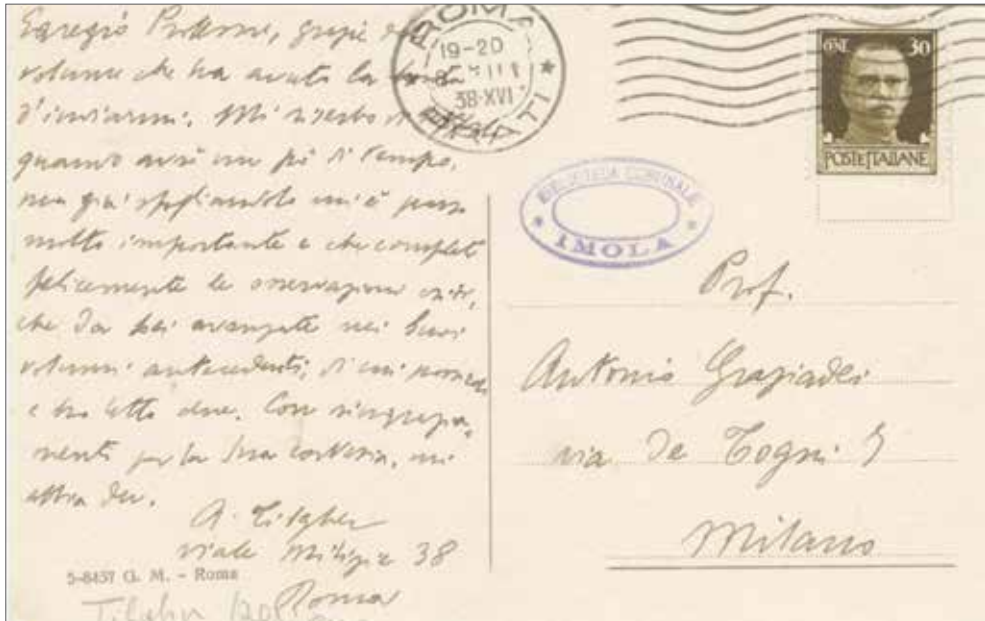 Egregio Professore, grazie del
volume che ha avuto la bontà
d'inviarmi. Mi riserbo di
quando avrò un pò di tempo,
ma già sfogliandolo mi è parso
molto importante e che completi
felicemente le osservazioni critiche
che da Lei avanzate nei Suoi
volumi antecedenti, di cui
e ho letto due. Con ringrazia-
menti per la Sua cortesia, mi
abbia Suo.
A. Tilgher
viale Milizie 38
Roma
5-8457 G. M. - Roma
Tilgher
ROMA
19-20
38-XVI
CENT. 30
POSTE ITALIANE
BIBLIOTECA COMUNALE
IMOLA
Prof.
Antonio Graziadei
via De Togni 5
Milano